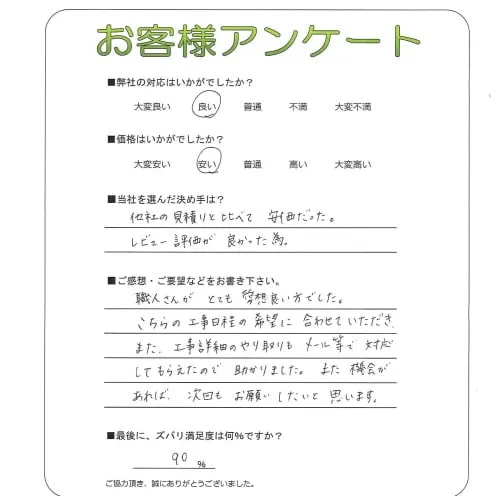 お客様アンケート
■弊社の対応はいかがでしたか？
大変良い 良い 普通 不満 大変不満
■価格はいかがでしたか？
大変安い 安い 普通 高い 大変高い
■当社を選んだ決め手は？
他社の見積りと比べて 安価だった。
レビュー評価が 良かった為。
■ご感想・ご要望などをお書き下さい。
職人さんが とても 愛想良い方でした。
こちらの工事日程の希望に 合わせていただき、
また、工事詳細のやり取りも メール等で 対応
してもらえたので 助かりました。また 機会が
あれば、次回も お願いしたいと 思います。
■最後に、ズバリ満足度は何%ですか？
90 %
ご協力頂き、誠にありがとうございました。